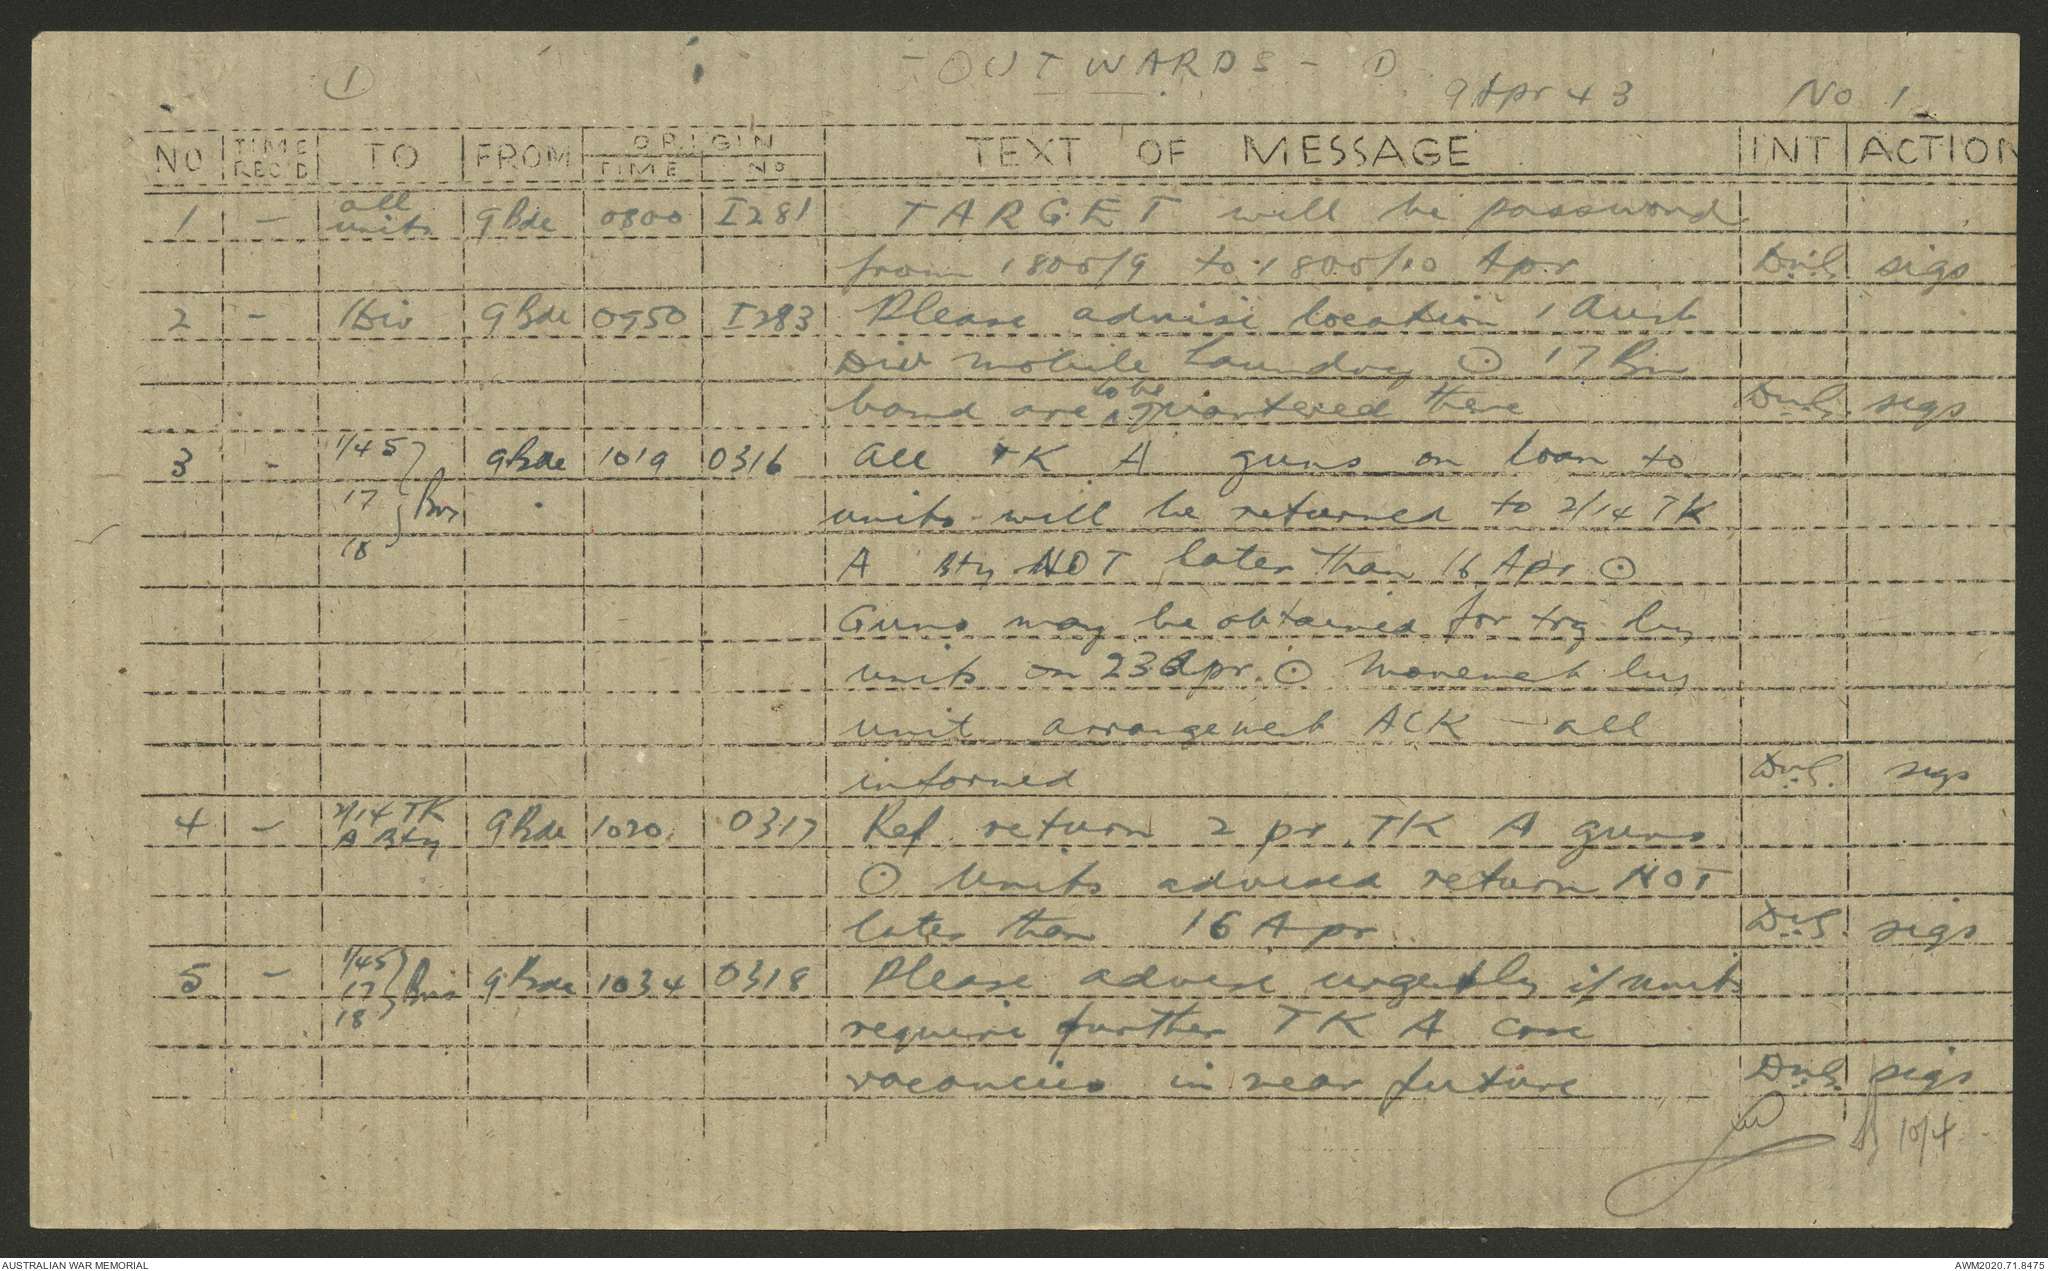 ①
- OUTWARDS - ①
9 Apr 43 No 1
NO | TIME REC'D | TO | FROM | ORIGIN TIME | ORIGIN No | TEXT OF MESSAGE | INT | ACTION
1 - all units 9 Bde 0800 I281 TARGET will be password
from 1800/9 to 1800/10 Apr sigs
2 - 1 Div 9 Bde 0950 I283 Please advise location 1 Aust
Div mobile Laundry ⊙ 17 Bn
band are to be quartered there sigs
3 - 1/45 9 Bde 1019 0316 All TK A guns on loan to
17 } Bns units will be returned to 2/14 TK
18 A Bty NOT later than 16 Apr ⊙
Guns may be obtained for trg by
units on 23 Apr. ⊙ Movement by
unit arrangement ACK - all
informed sigs
4 - 2/14 TK A Bty 9 Bde 1020 0317 Ref return 2 pr TK A guns
⊙ Units advised return NOT
later than 16 Apr sigs
5 - 1/45 17 18 } Bns 9 Bde 1034 0318 Please advise urgently if units
require further TK A corse
vacancies in near future sigs
10/4
AUSTRALIAN WAR MEMORIAL
AWM2020.71.8475